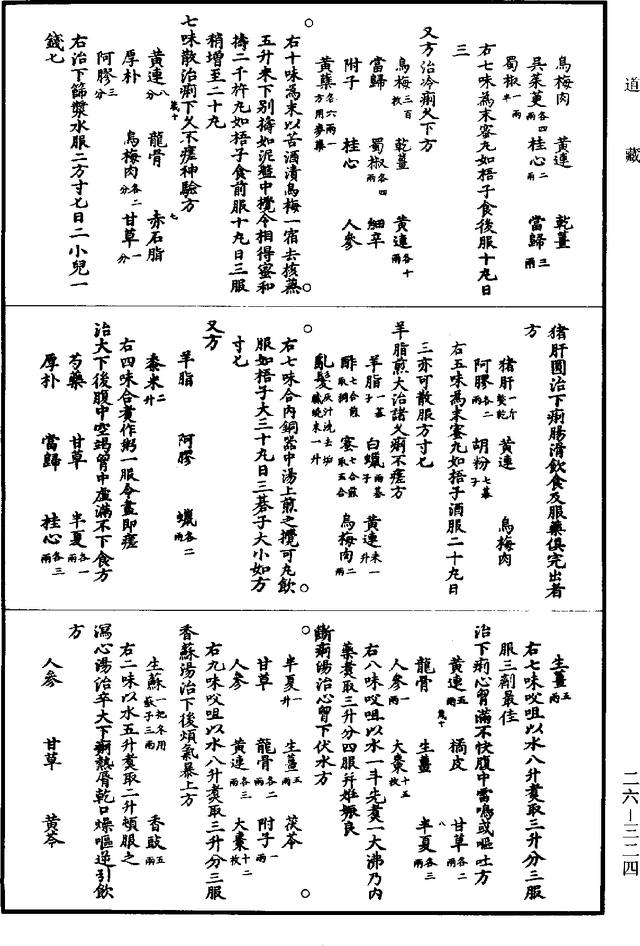 道藏
烏梅肉 黃連 乾薑
吳茱萸各四兩 桂心二兩 當歸三兩
蜀椒半兩
右七味為末蜜丸如梧子食後服十丸日
三
又方治冷痢久下方
烏梅三百枚 乾薑 黃連各十兩
當歸 蜀椒各四兩 細辛
附子 桂心 人參
黃蘗各六兩一方用麥蘗
右十味為末以苦酒漬烏梅一宿去核蒸
五升米下別擣如泥盤中攪令相得蜜和
擣二千杵丸如梧子食前服十丸日三服
稍增至二十丸
七味散治痢下久不瘥神驗方
黃連八分 龍骨 赤石脂
厚朴 烏梅肉各二分 甘草一分
阿膠三分
右治下篩漿水服二方寸匕日二小兒一
錢匕
豬肝圓治下痢腸滑飲食及服藥俱完出者
方
豬肝一斤熬乾 黃連 烏梅肉
阿膠各二兩 胡粉七棊子
右五味為末蜜丸如梧子酒服二十丸日
三亦可散服方寸匕
羊脂煎大治諸久痢不瘥方
羊脂一棊子 白蠟兩棊子 黃連末一升
酢七合煎取稠 蜜七合煎取五合 烏梅肉二兩
亂髮灰汁洗去垢膩燒末一升
右七味合內銅器中湯上煎之攪可丸飲
服如梧子大三十丸日三棊子大小如方
寸匕
又方
羊脂 阿膠 蠟各二兩
黍米二升
右四味合煮作粥一服令盡即瘥
治大下後腹中空竭胷中虛滿不下食方
芍藥 甘草 半夏各一兩
厚朴 當歸 桂心各三兩
生薑五兩
右七味㕮咀以水八升煮取三升分三服
服三劑最佳
治下痢心胷滿不快腹中雷鳴或嘔吐方
黃連五兩 橘皮 甘草各二兩
龍骨 生薑 半夏各三兩
人參一兩 大棗十五枚
右八味㕮咀以水一斗先煮一大沸乃內
藥煮取三升分四服并妊娠良
斷痢湯治心胷下伏水方
半夏一升 生薑五兩 茯苓
甘草 龍骨各二兩 附子一兩
人參 黃連各三兩 大棗十二枚
右九味㕮咀以水八升煮取三升分三服
香蘇湯治下後煩氣暴上方
生蘇一把冬用蘇子三兩 香豉五兩
右二味以水五升煮取二升頓服之
瀉心湯治卒大下痢熱脣乾口燥嘔逆引飲
方
人參 甘草 黃芩
二六—三二四